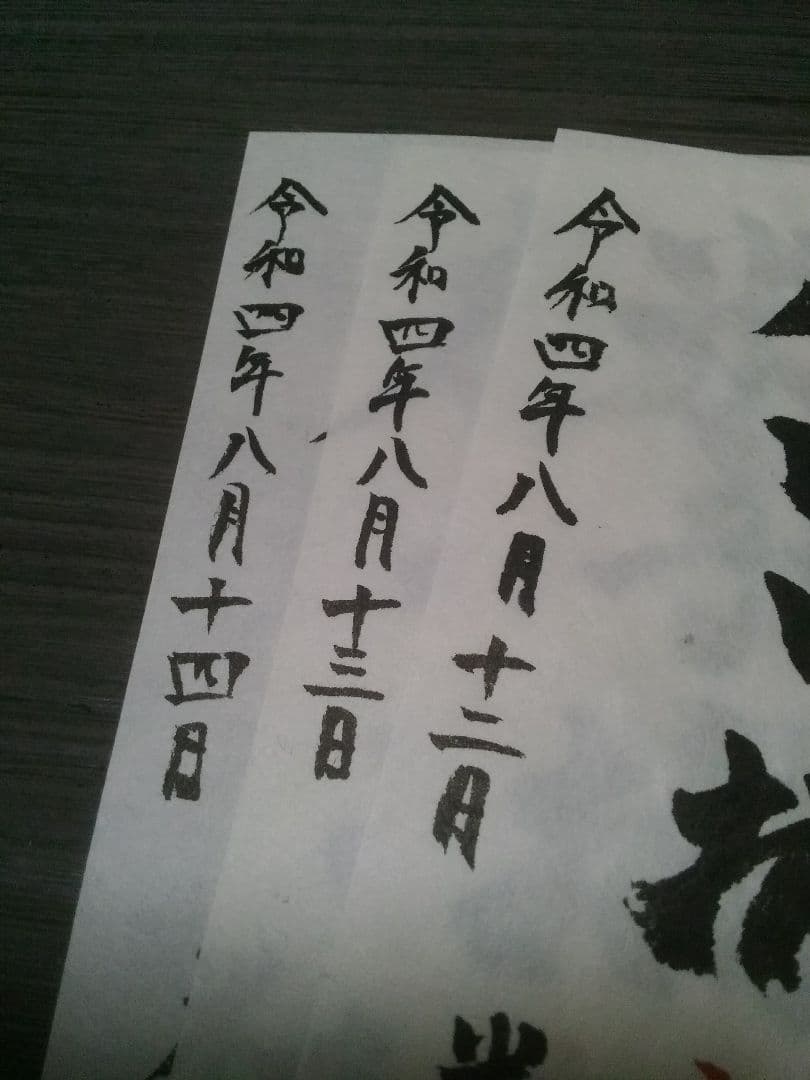 令和四年八月十二月
令和四年八月十三日
令和四年八月十四日